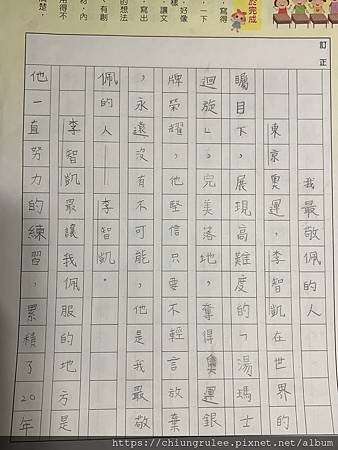 訂正
我最敬佩的人
東京奧運，李智凱在世界的
矚目下，展現高難度的「湯瑪士
迴旋」。完美落地，奪得奧運銀
牌榮耀，他堅信只要不輕言放棄
，永遠沒有不可能，他是我最敬
佩的人——李智凱。
李智凱最讓我佩服的地方是
他一直努力的練習，累積了20年
於完成
https://chiungrulee.pixnet.net/album